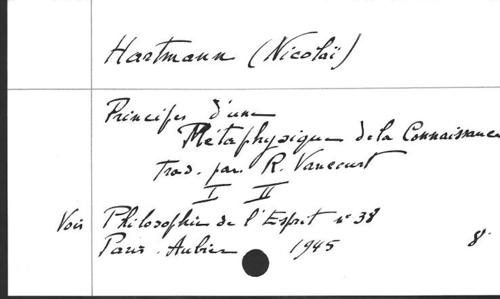 Hartmann (Nicolaï)
Principes d'une
Métaphysique de la Connaissance
Trad. par R. Vancourt
I II
Voir Philosophie de l'Esprit n° 38
Paris. Aubier 1945 8°